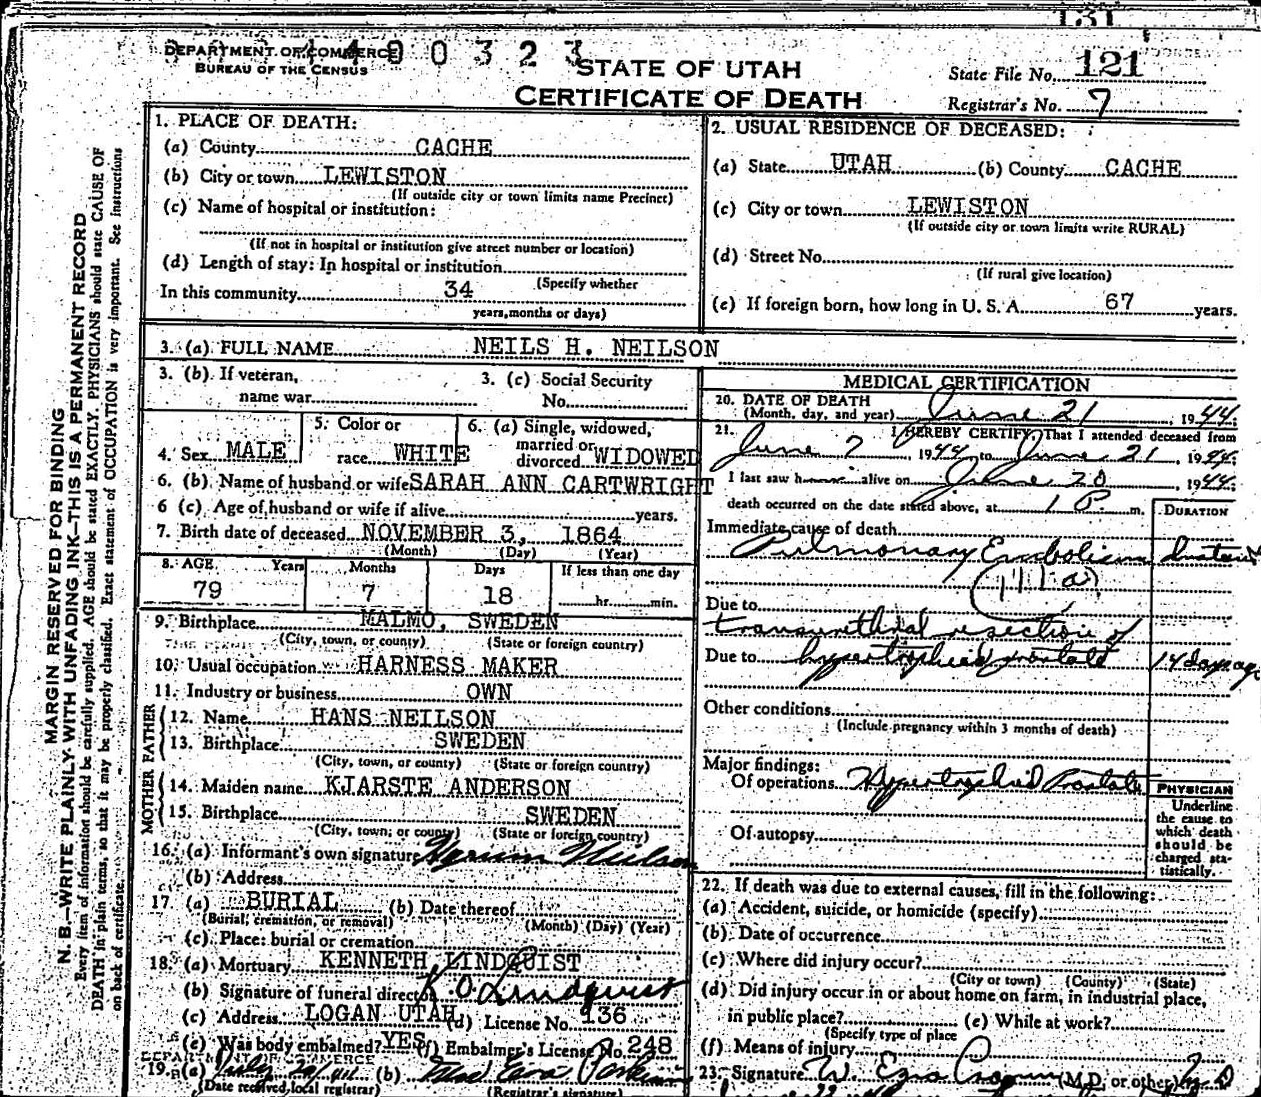 131
DEPARTMENT OF COMMERCE
BUREAU OF THE CENSUS
4 0 0 3 2 3
STATE OF UTAH
CERTIFICATE OF DEATH
State File No. 121
Registrar's No. 7
MARGIN RESERVED FOR BINDING
N. B.—WRITE PLAINLY WITH UNFADING INK—THIS IS A PERMANENT RECORD
Every item of information should be carefully supplied. AGE should be stated EXACTLY. PHYSICIANS should state CAUSE OF
DEATH in plain terms, so that it may be properly classified. Exact statement of OCCUPATION is very important. See instructions
on back of certificate.
1. PLACE OF DEATH:
(a) County CACHE
(b) City or town LEWISTON
(If outside city or town limits name Precinct)
(c) Name of hospital or institution:
(If not in hospital or institution give street number or location)
(d) Length of stay: In hospital or institution
(Specify whether
In this community 34
years, months or days)
2. USUAL RESIDENCE OF DECEASED:
(a) State UTAH (b) County CACHE
(c) City or town LEWISTON
(If outside city or town limits write RURAL)
(d) Street No.
(If rural give location)
(e) If foreign born, how long in U. S. A. 67 years.
3. (a) FULL NAME NEILS H. NEILSON
3. (b) If veteran,
name war
3. (c) Social Security
No.
4. Sex MALE
5. Color or
race WHITE
6. (a) Single, widowed,
married or
divorced WIDOWED
6. (b) Name of husband or wife SARAH ANN CARTWRIGHT
6 (c) Age of husband or wife if alive years.
7. Birth date of deceased NOVEMBER 3, 1864
(Month) (Day) (Year)
8. AGE Years Months Days If less than one day
79 7 18 hr. min.
9. Birthplace MALMO, SWEDEN
(City, town, or county) (State or foreign country)
10. Usual occupation HARNESS MAKER
11. Industry or business OWN
FATHER
12. Name HANS NEILSON
13. Birthplace SWEDEN
(City, town, or county) (State or foreign country)
MOTHER
14. Maiden name KJARSTE ANDERSON
15. Birthplace SWEDEN
(City, town, or county) (State or foreign country)
16. (a) Informant's own signature Neilson
(b) Address
17. (a) BURIAL (b) Date thereof
(Burial, cremation, or removal) (Month) (Day) (Year)
(c) Place: burial or cremation
18. (a) Mortuary KENNETH LINDQUIST
(b) Signature of funeral director K O Lindquist
(c) Address LOGAN UTAH, (d) License No. 136
(e) Was body embalmed? YES (f) Embalmer's License No. 248
DEPARTMENT OF COMMERCE
19. (a) July (b)
(Date received local registrar) (Registrar's signature)
MEDICAL CERTIFICATION
20. DATE OF DEATH
(Month, day, and year) June 21, 1944
21. I HEREBY CERTIFY, That I attended deceased from
June 7, 1944 to June 21, 1944
I last saw h alive on June 20, 1944
death occurred on the date stated above, at 1 P. m.
DURATION
Immediate cause of death
Pulmonary Embolism
Due to
transurethral resection of
Due to hypertrophied prostate 14 days ago
Other conditions
(Include pregnancy within 3 months of death)
Major findings:
Of operations Hypertrophied Prostate
Of autopsy
PHYSICIAN
Underline
the cause to
which death
should be
charged sta-
tistically.
22. If death was due to external causes, fill in the following:
(a) Accident, suicide, or homicide (specify)
(b) Date of occurrence
(c) Where did injury occur?
(City or town) (County) (State)
(d) Did injury occur in or about home on farm, in industrial place,
in public place? (e) While at work?
(Specify type of place
(f) Means of injury
23. Signature W. Ezra (M.D. or other) M D